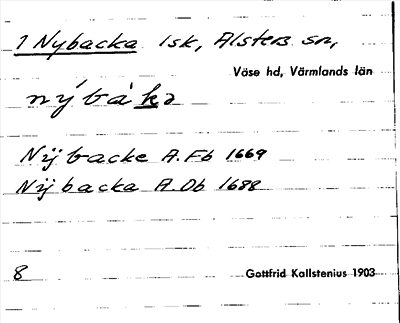 1 Nybacka Isk, Alsters sn,
Väse hd, Värmlands län
nýbàka
Nÿbacke A.Fb 1669
Nÿbacka A.Db 1688
8 Gottfrid Kallstenius 1903